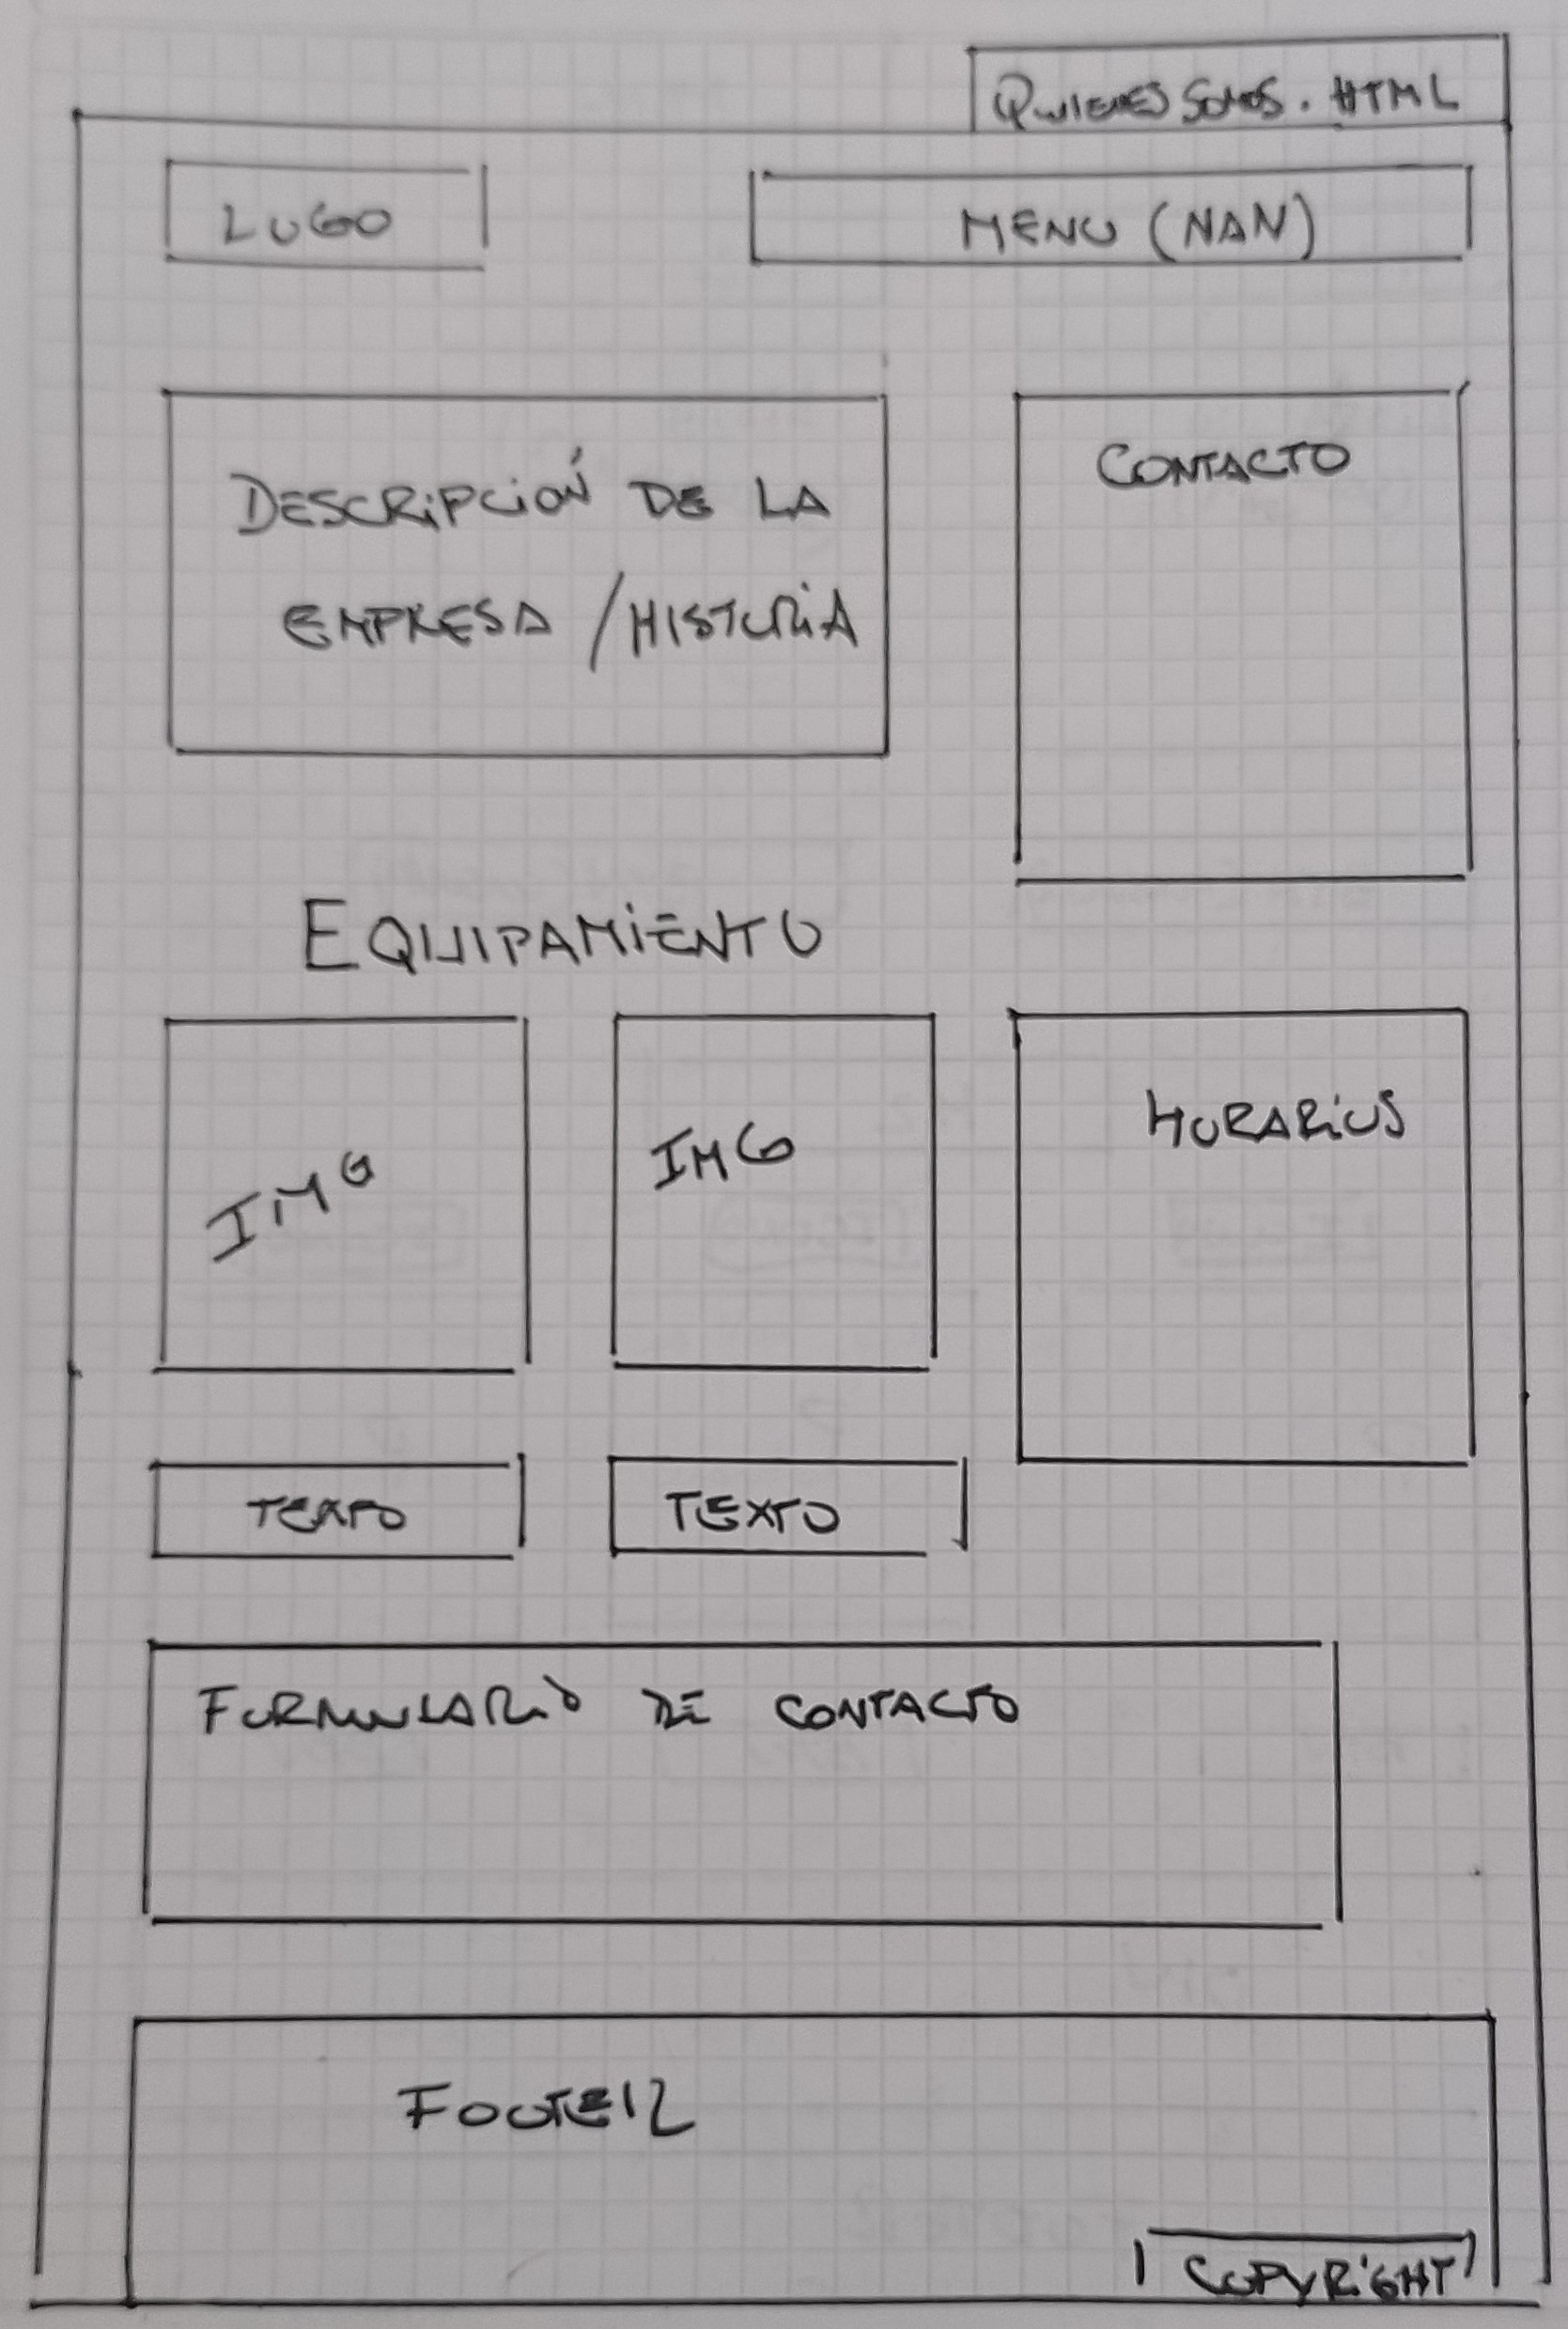 QUIENES SOMOS. HTML
LOGO
MENU (NAN)
DESCRIPCIÓN DE LA
EMPRESA / HISTORIA
CONTACTO
EQUIPAMIENTO
IMG
IMG
HORARIOS
TEXTO
TEXTO
FORMULARIO DE CONTACTO
FOOTER
COPYRIGHT